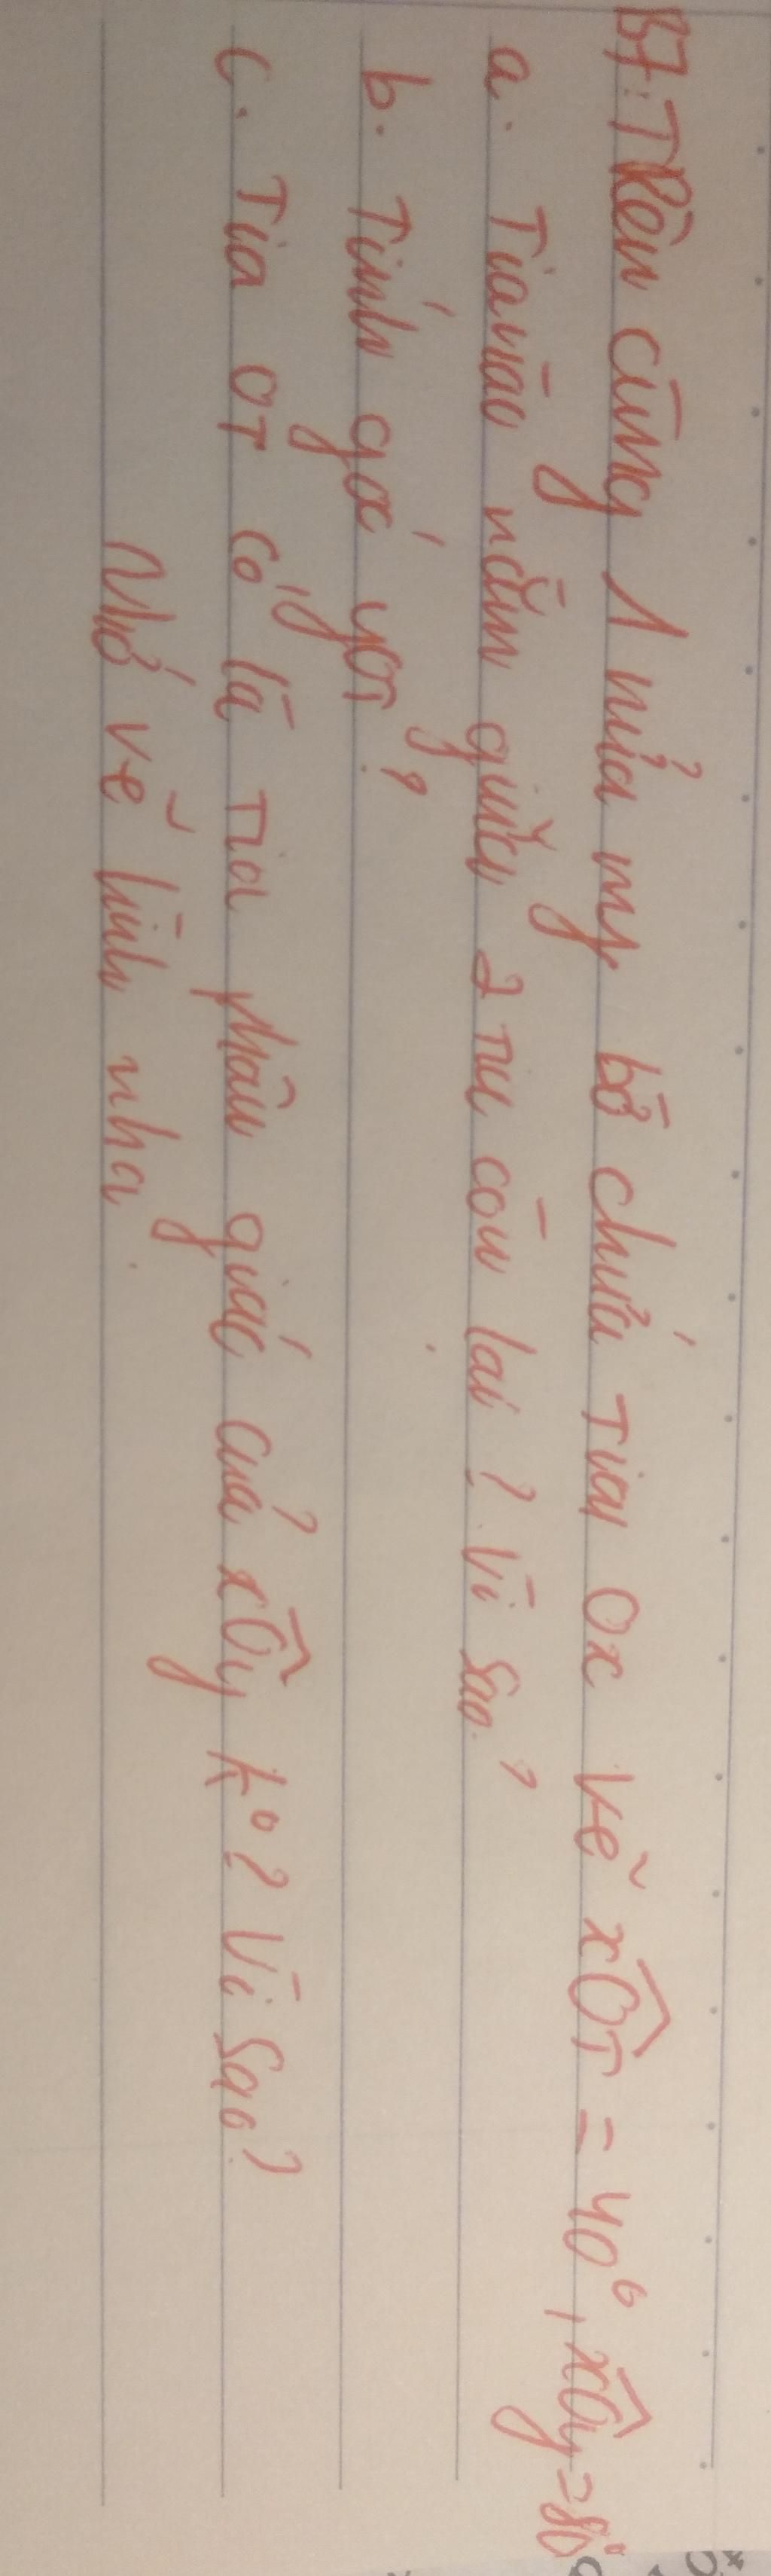 B7: Trên cùng 1 nửa mp bờ chứa tia Ox vẽ xOT = 40°, xOy = 80°
a. Tia nào nằm giữa 2 tia còn lại? Vì sao?
b. Tính góc yOT?
c. Tia OT có là tia phân giác của xOy k°? Vì sao?
Nhớ vẽ hình nha.